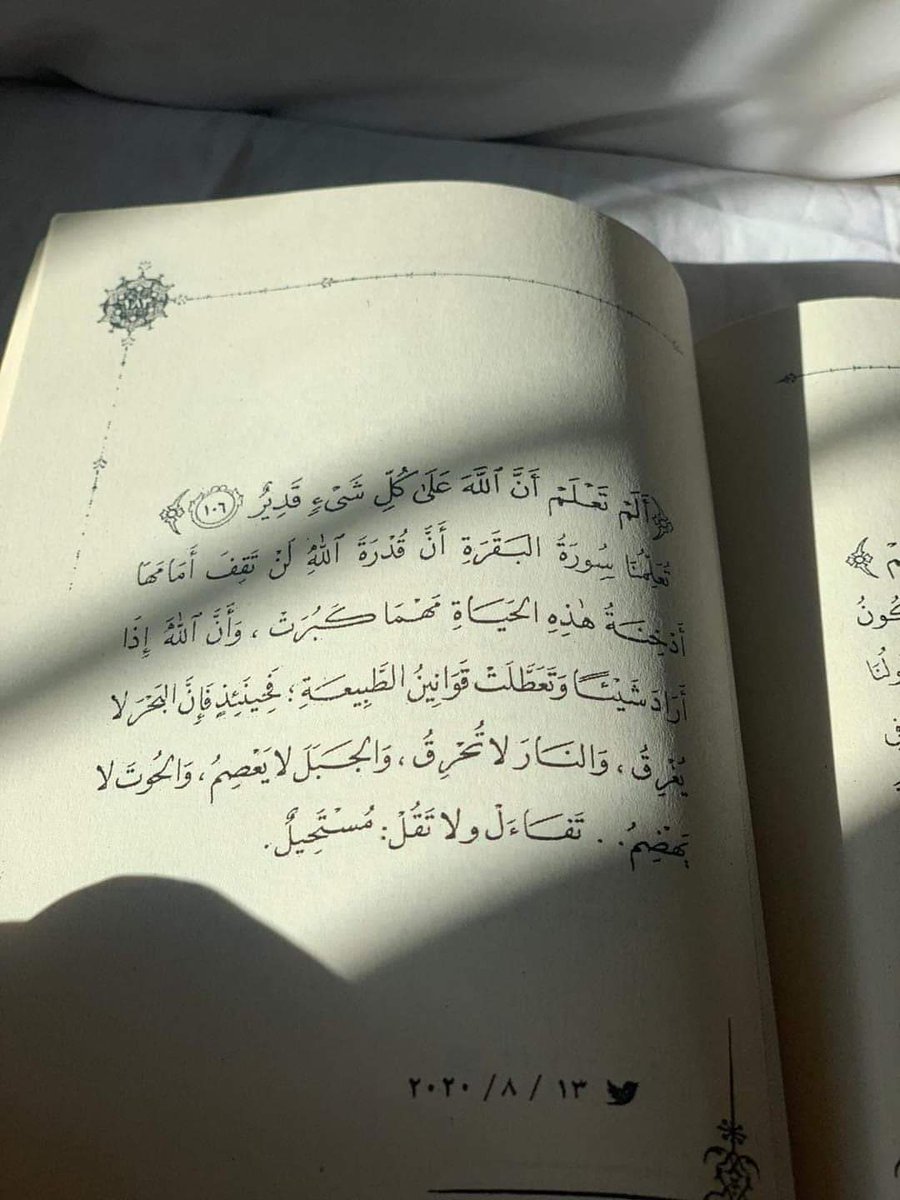 ﴿أَلَمْ تَعْلَمْ أَنَّ ٱللَّهَ عَلَىٰ كُلِّ شَىْءٍ قَدِيرٌ ١٠٦﴾
تُعَلِّمُنَا سُورَةُ البَقَرَةِ أَنَّ قُدْرَةَ ٱللَّهِ لَنْ تَقِفَ أَمَامَهَا
أَدْخِنَةُ هٰذِهِ الحَيَاةِ مَهْمَا كَبُرَتْ، وَأَنَّ ٱللَّهَ إِذَا
أَرَادَ شَيْئًا وَتَعَطَّلَتْ قَوَانِينُ الطَّبِيعَةِ؛ فَحِينَئِذٍ فَإِنَّ البَحْرَ لا
يُغْرِقُ، وَالنَارَ لا تُحْرِقُ، وَالجَبَلَ لا يَعْصِمُ، وَالحُوتَ لا
يَهْضِمُ.. تَفَاءَلْ ولا تَقُلْ: مُسْتَحِيلٌ.
١٣ / ٨ / ٢٠٢٠
مْ ﴾
كُونُ
ولُنَا